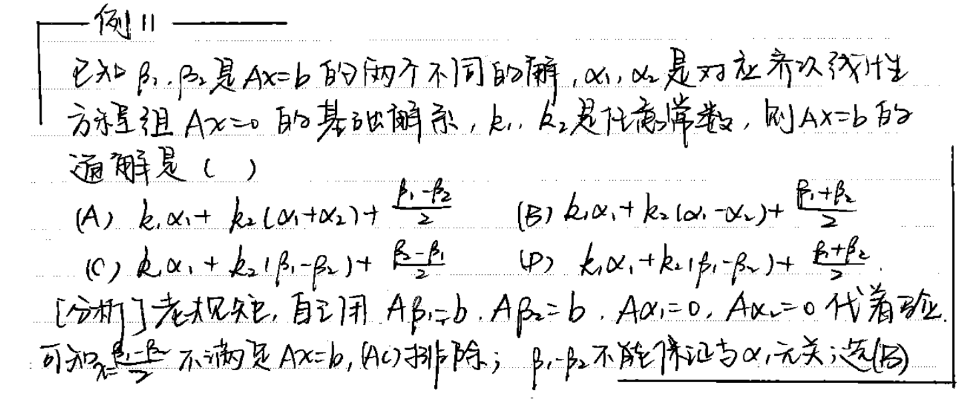 例11
已知 β₁, β₂是Ax=b的两个不同的解,α₁,α₂是对应齐次线性
方程组 Ax=0 的基础解系, k₁, k₂是任意常数, 则Ax=b的
通解是( )
(A) k₁α₁+ k₂(α₁+α₂)+ (β₁-β₂)/2 (B) k₁α₁+ k₂(α₁-α₂)+ (β₁+β₂)/2
(C) k₁α₁+ k₂(β₁-β₂)+ (β₂-β₁)/2 (D) k₁α₁+k₂(β₁-β₂)+ (β₁+β₂)/2
[分析]老规矩, 自己用 Aβ₁=b, Aβ₂=b, Aα₁=0, Aα₂=0 代着验.
可知x=(β₁-β₂)/2 不满足Ax=b, (AC)排除; β₁-β₂不能保证与α₁无关;选(B)